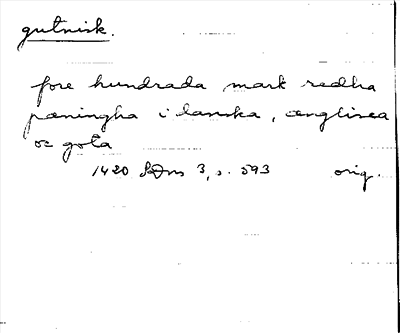 gutnisk.
fore hundrada mark redha
pæninga i danska, ænglisca
oc gota
1420 SDns 3, s. 593 orig.